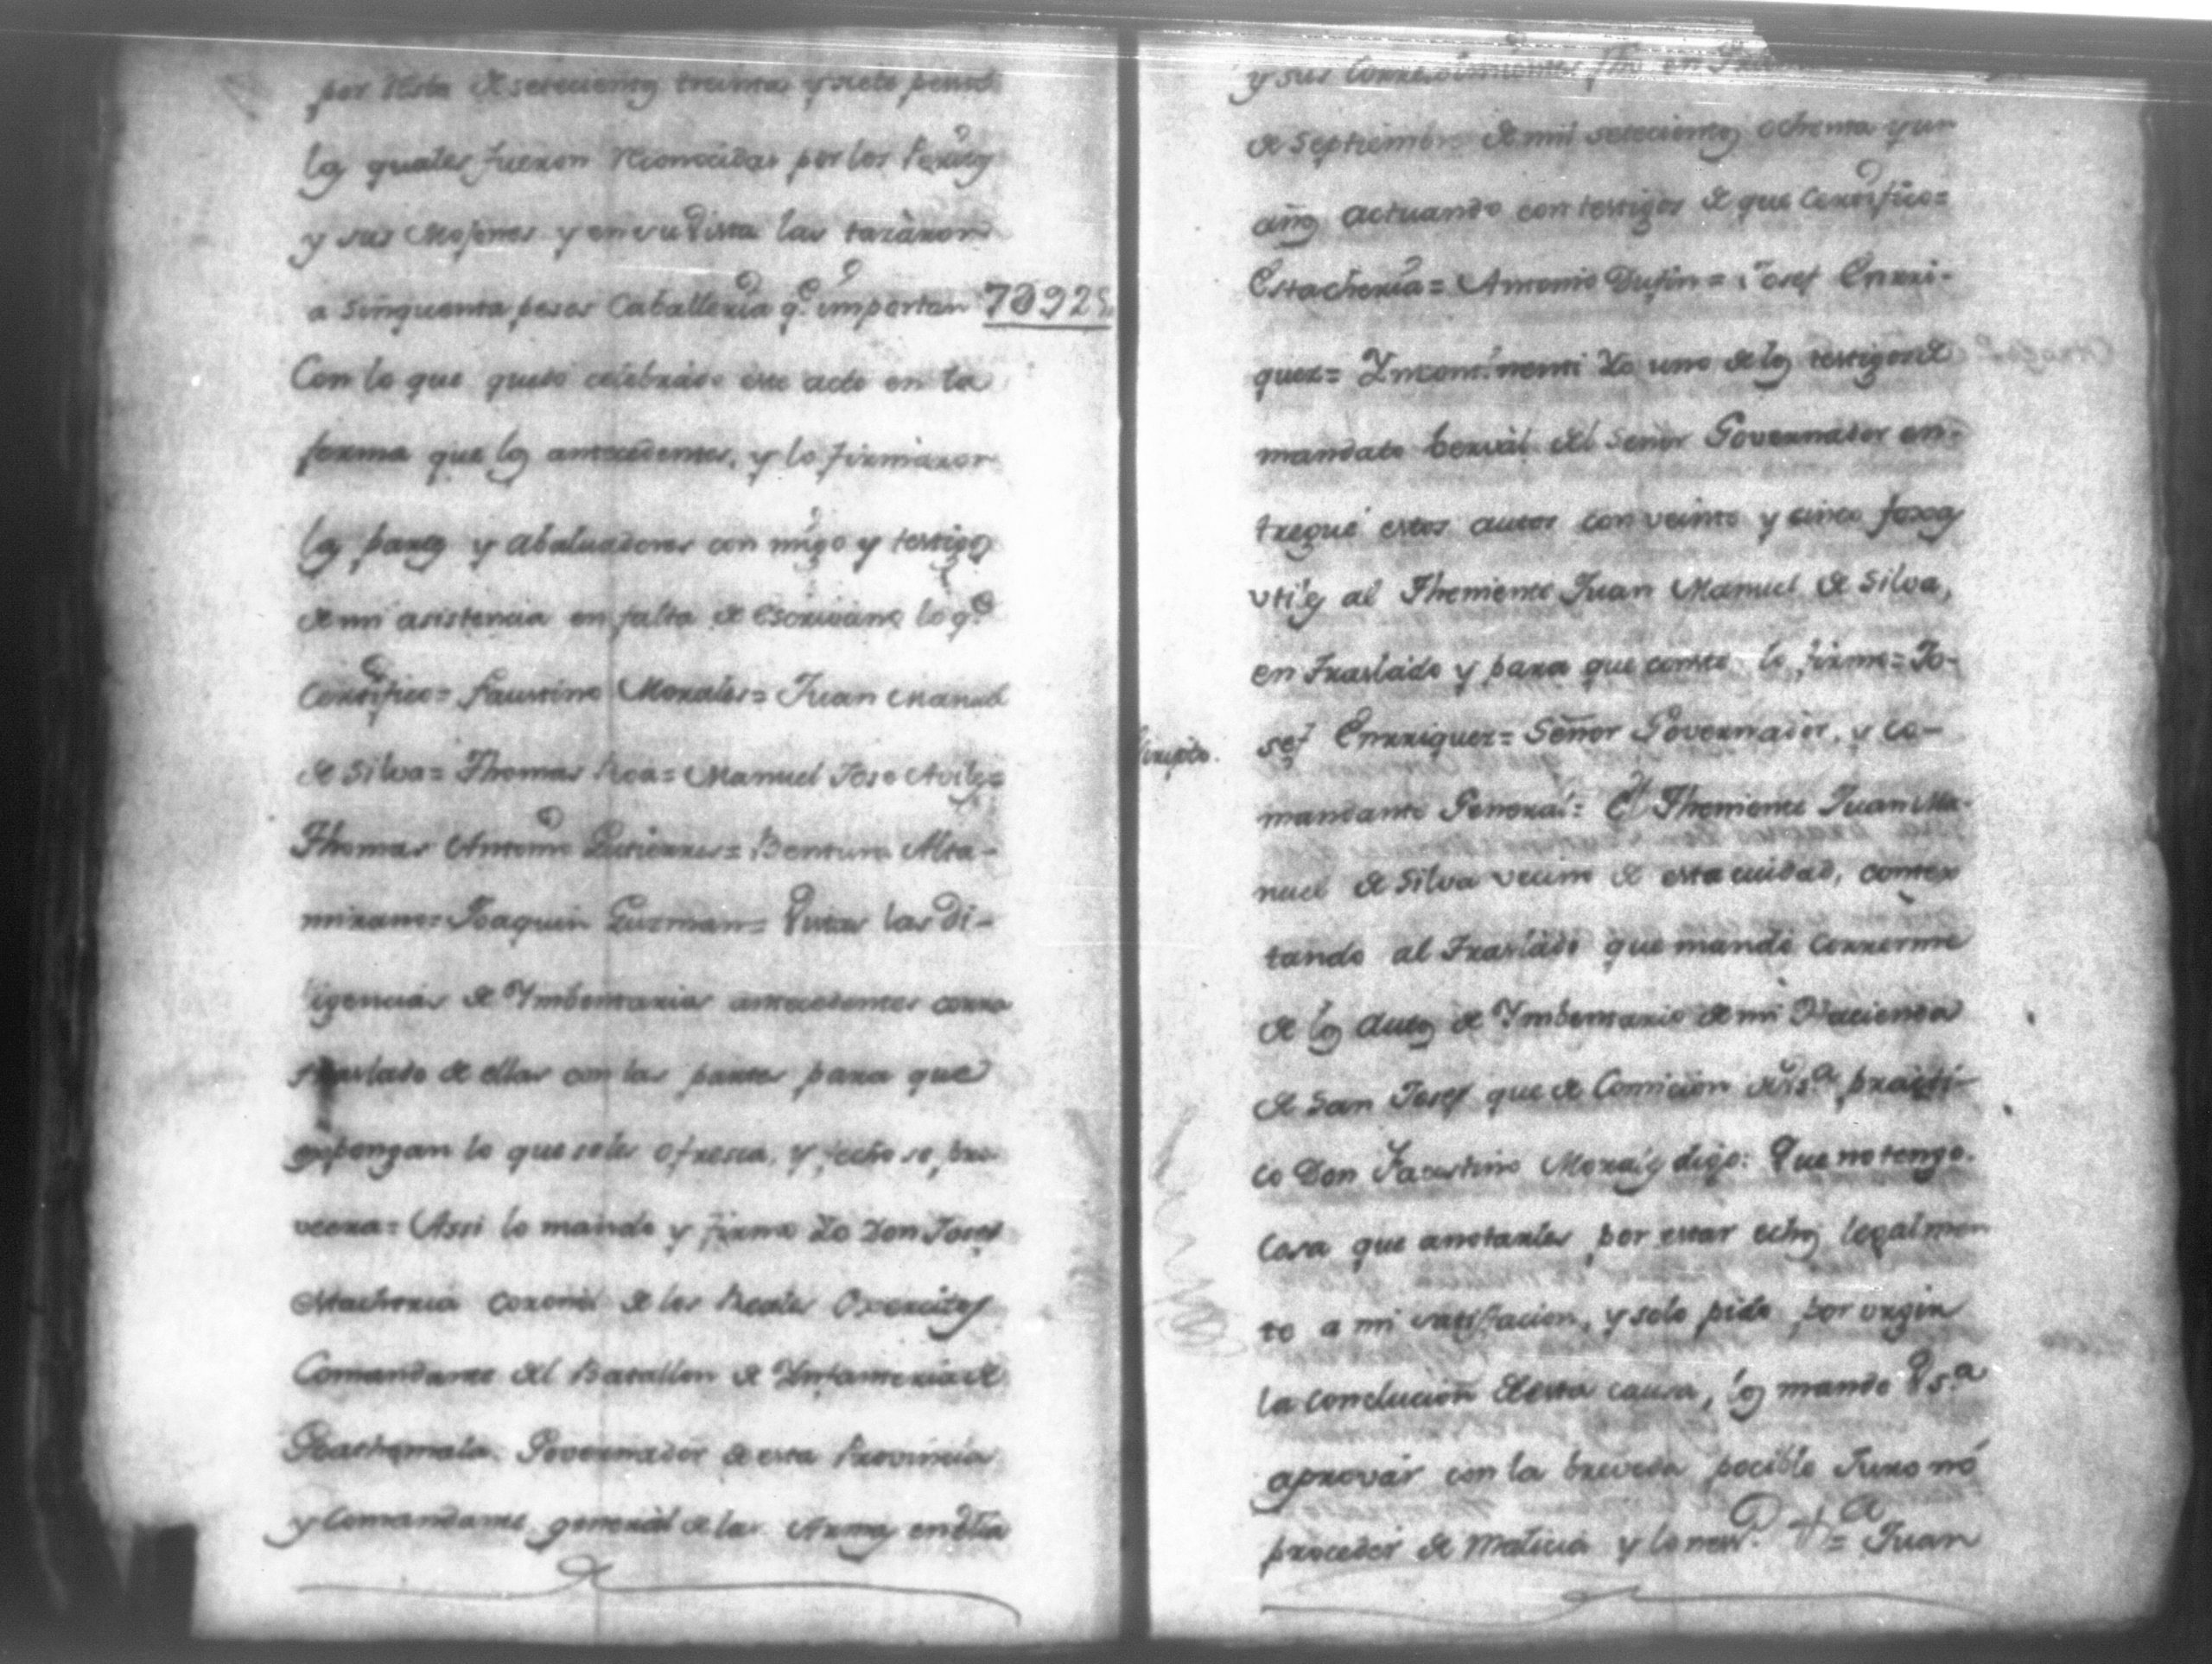 por resta de setecientos treinta y siete pesos
los quales fueron reconocidas por los Peritos
y sus Mojones y en su vista las tazàron
a sinquenta pesos Caballeria q.e importan
Con lo que quedó celebrado este acto en la
forma que los antecedentes, y lo firmaron
los partes y Abaluadores con migo y testigos
de mi asistencia en falta de Escrivano lo q.e
Certifico= Faustino Morales= Juan Manuel
de Silva= Thomas Roa= Manuel Jose Aviles=
Thomas Antonio Gutierres= Bentura Alta-
mirano= Joaquin Guzman= Vistas las di-
ligencias de Ymbentarios antecedentes corra
traslado de ellas con las partes para que
expongan lo que seles ofresca, y fecho se pro-
veera= Assi lo mando y firmo Yo Don Josef
Estacheria Coronel de los Reales Exercitos
Comandante del Batallon de Ynfanteria de
Goathemala. Governador de esta Provincia
y Comandante general de las Armas en ella
y sus
de Septiembre de mil setecientos ochenta y un
años actuando con testigos de que Certifico=
Estacheria= Antonio Dufin= Josef Enrri-
quez= Yncontinenti Yo uno de los testigos de
mandato berval del Señor Governador en-
tregué estos autos con veinte y cinco foxas
utiles al Theniente Juan Manuel de Silva,
en Traslado y para que conste lo firme= Jo-
sef Enrriquez= Señor Governador, y Co-
mandante General= El Theniente Juan Ma-
nuel de Silva vecino de esta ciudad, contes
tando al Traslado que mandó correrme
de los Autos de Ymbentario de mi Hacienda
de San Josef que de Comicion de Vs.a practi-
có Don Faustino Morales digo: Que no tengo
Cosa que anotarles por estar echos legalmen
te a mi satisfacion, y solo pido por urgir
la conclucion de esta causa, los mande Vs.a
aprovar con la breveda pocible Juro nó
proceder de Malicia y lo nes.o &.a= Juan